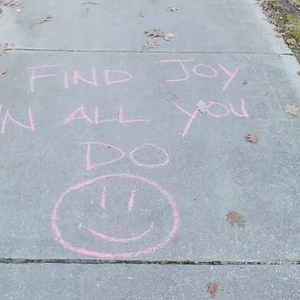 FIND JOY
IN ALL YOU
DO